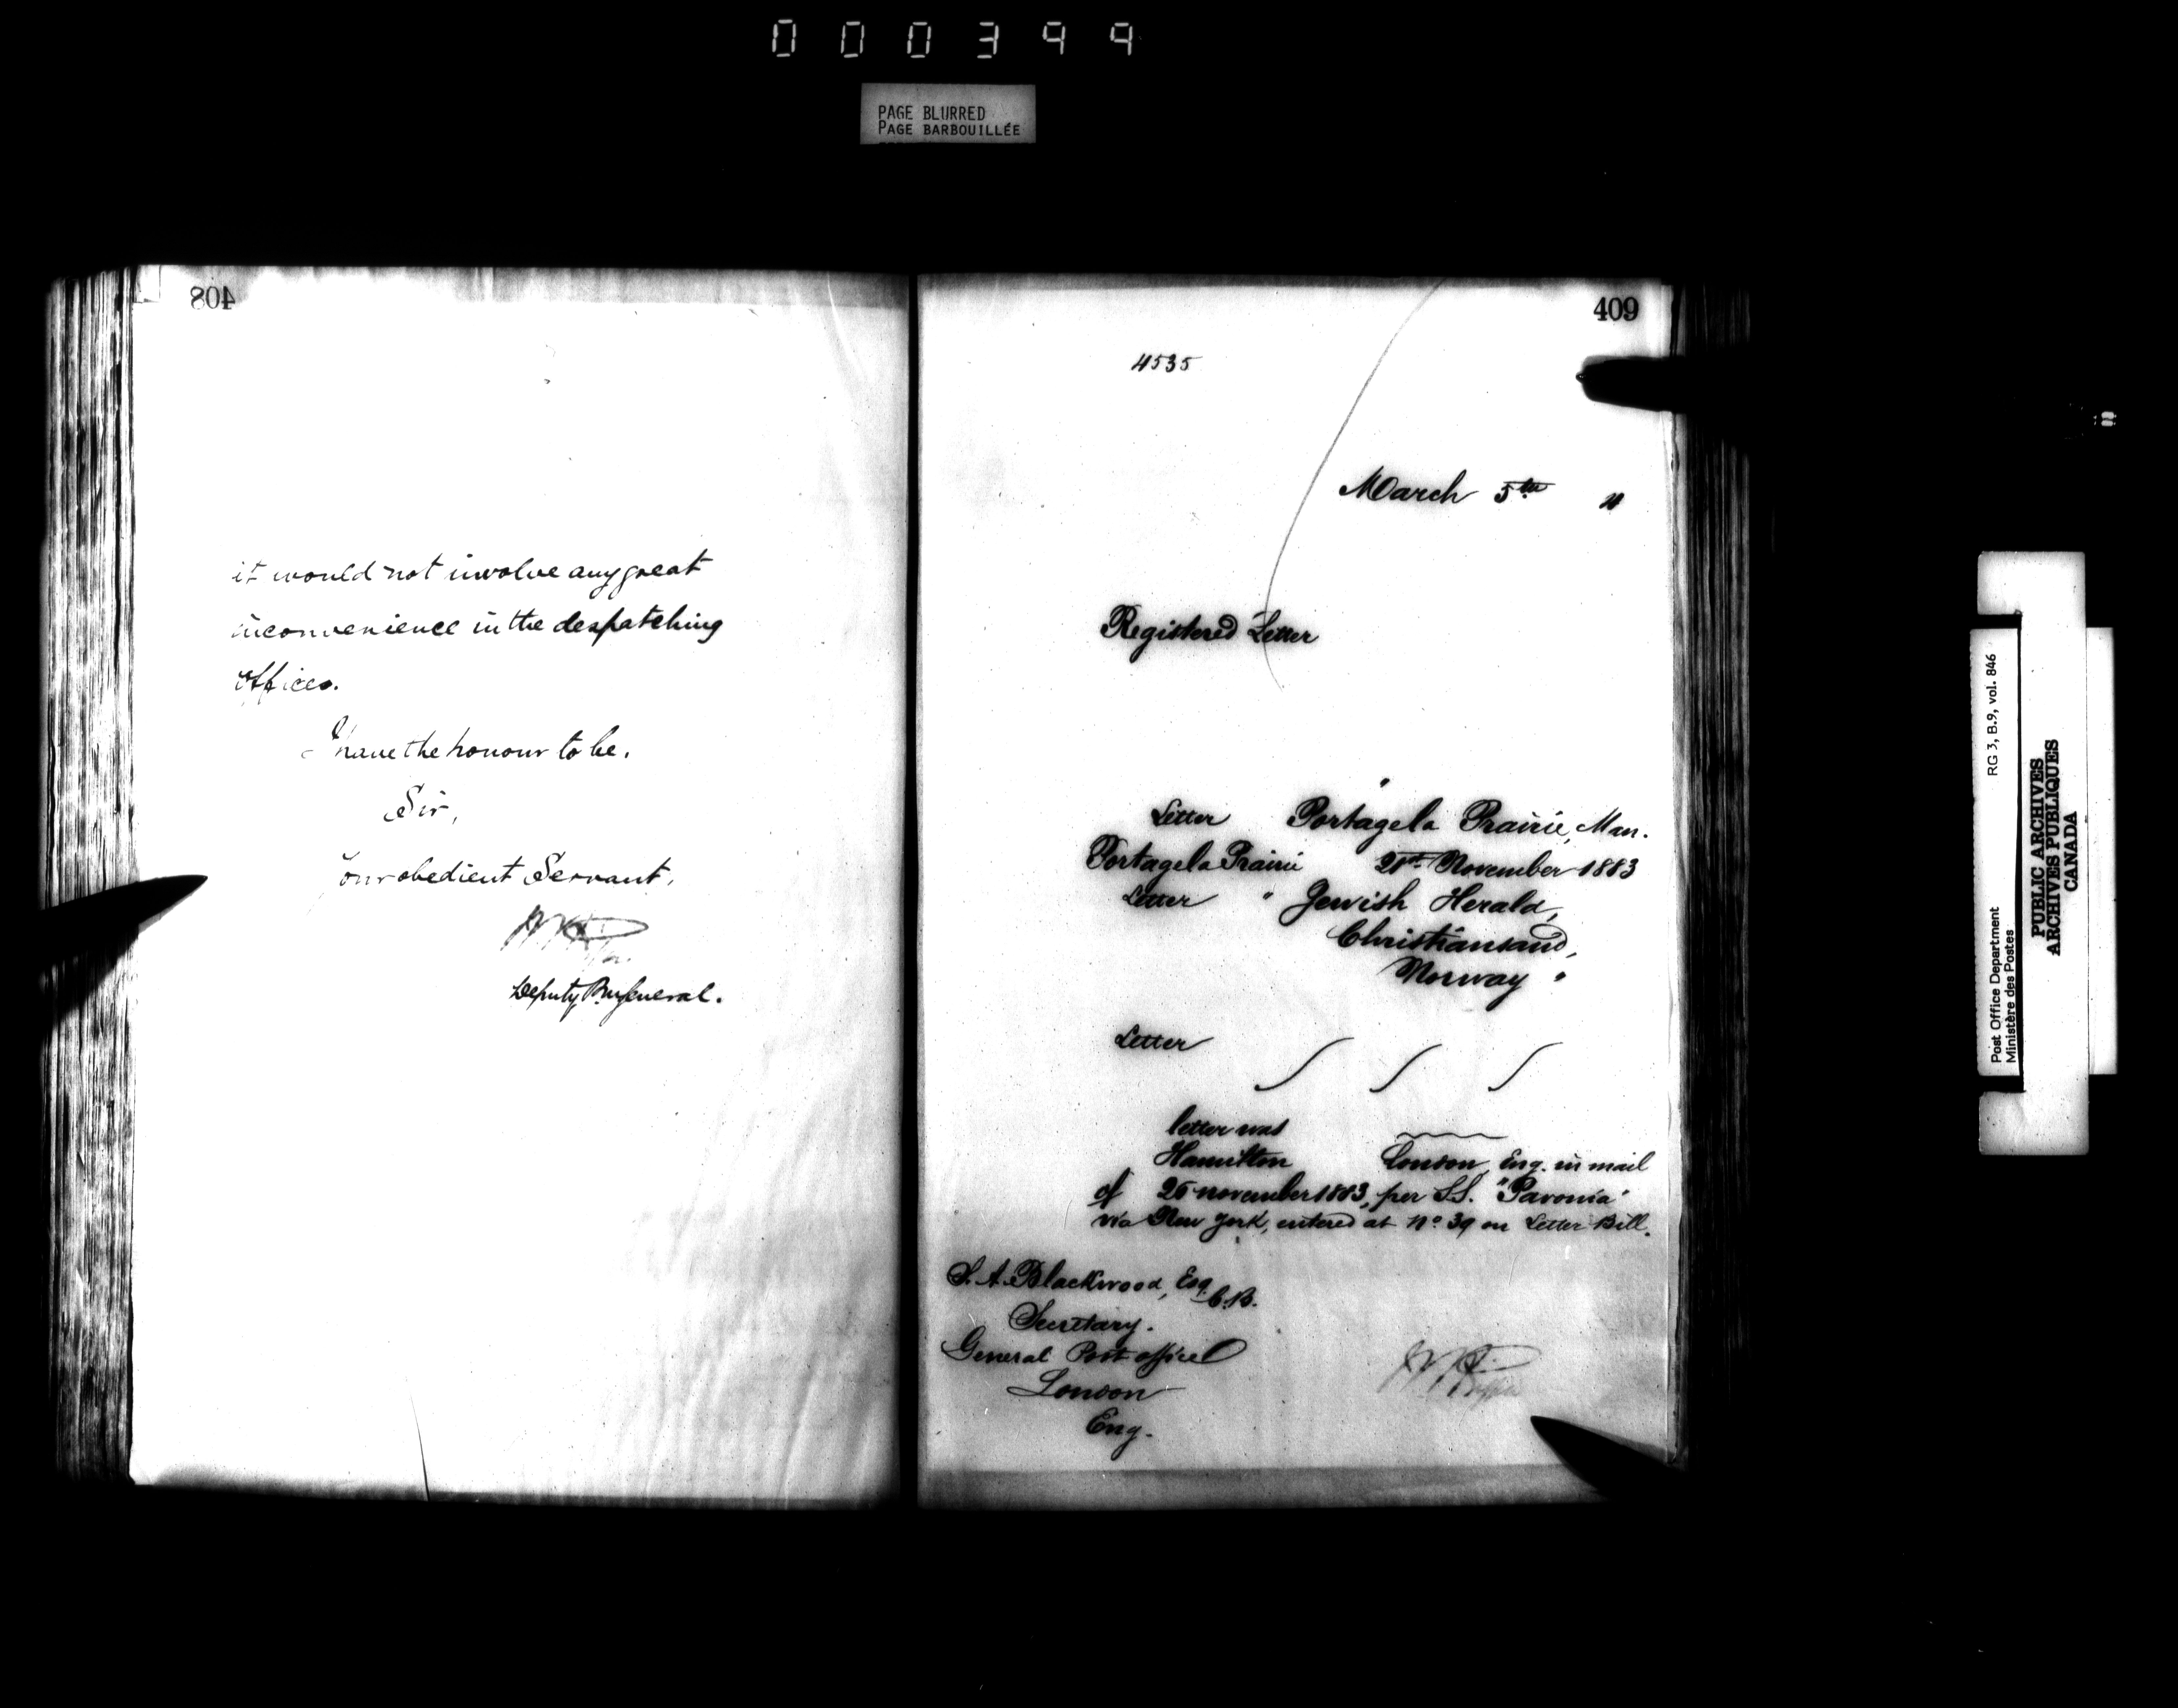 000399
PAGE BLURRED
PAGE BARBOUILLÉE
408
it would not involve any great
inconvenience in the despatching
Offices.
I have the honour to be,
Sir,
Your obedient Servant,
Deputy P.M. General.
409
4535
March 5th 4
Registered Letter
"
Letter Portage la Prairie, Man.
Portage la Prairie 21st November 1883
Letter " Jewish Herald,
Christiansand,
Norway "
Letter
letter was
Hamilton London, Eng. in mail
of 26 november 1883, per S.S. "Pavonia"
via New York, entered at No. 39 on Letter Bill.
S. A. Blackwood, Esq.
C.B.
Secretary.
General Post Office
London
Eng.
Post Office Department RG 3, B.9, vol. 846
Ministère des Postes
PUBLIC ARCHIVES
ARCHIVES PUBLIQUES
CANADA